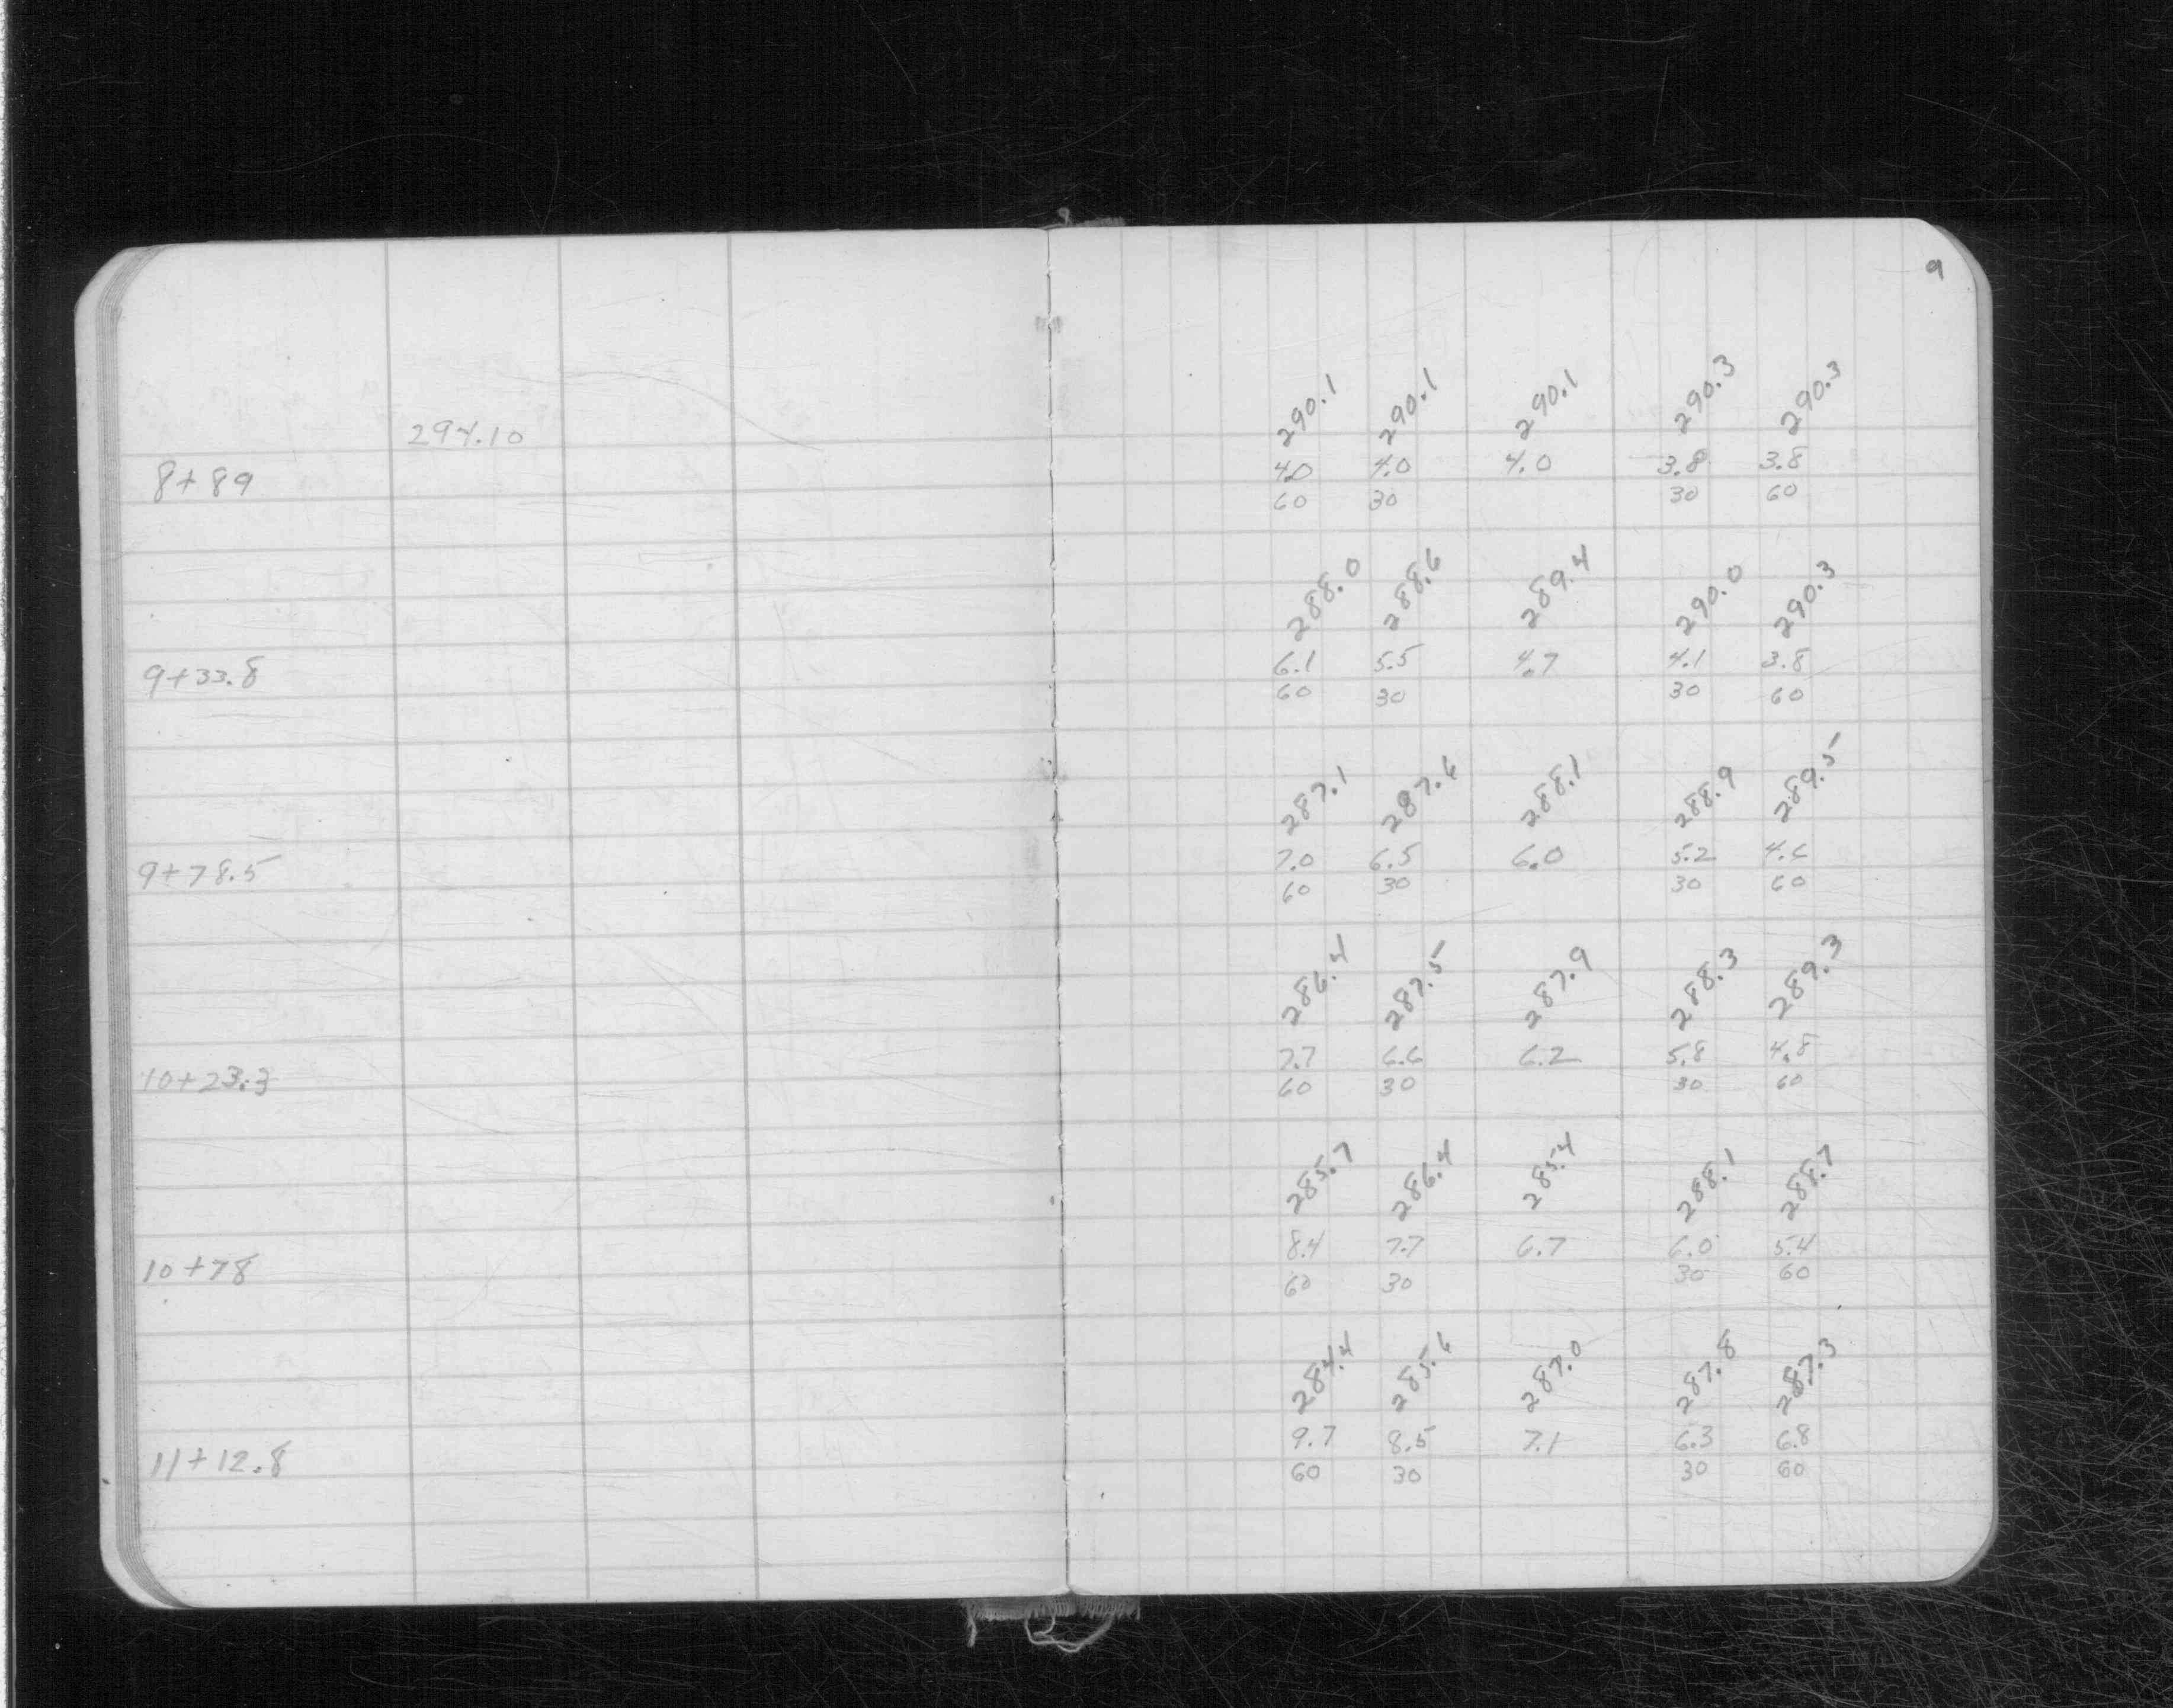 9
290.1 290.1 290.1 290.3 290.3
294.10
8+89 4.0 4.0 4.0 3.8 3.8
60 30 30 60
288.0 288.6 289.4 290.0 290.3
9+33.8 6.1 5.5 4.7 4.1 3.8
60 30 30 60
287.1 287.6 288.1 288.9 289.5
9+78.5 7.0 6.5 6.0 5.2 4.6
60 30 30 60
286.4 287.5 287.9 288.3 289.3
10+23.3 7.7 6.6 6.2 5.8 4.8
60 30 30 60
285.7 286.4 285.4 288.1 288.7
10+78 8.4 7.7 6.7 6.0 5.4
60 30 30 60
284.4 285.6 287.0 287.8 287.3
11+12.8 9.7 8.5 7.1 6.3 6.8
60 30 30 60